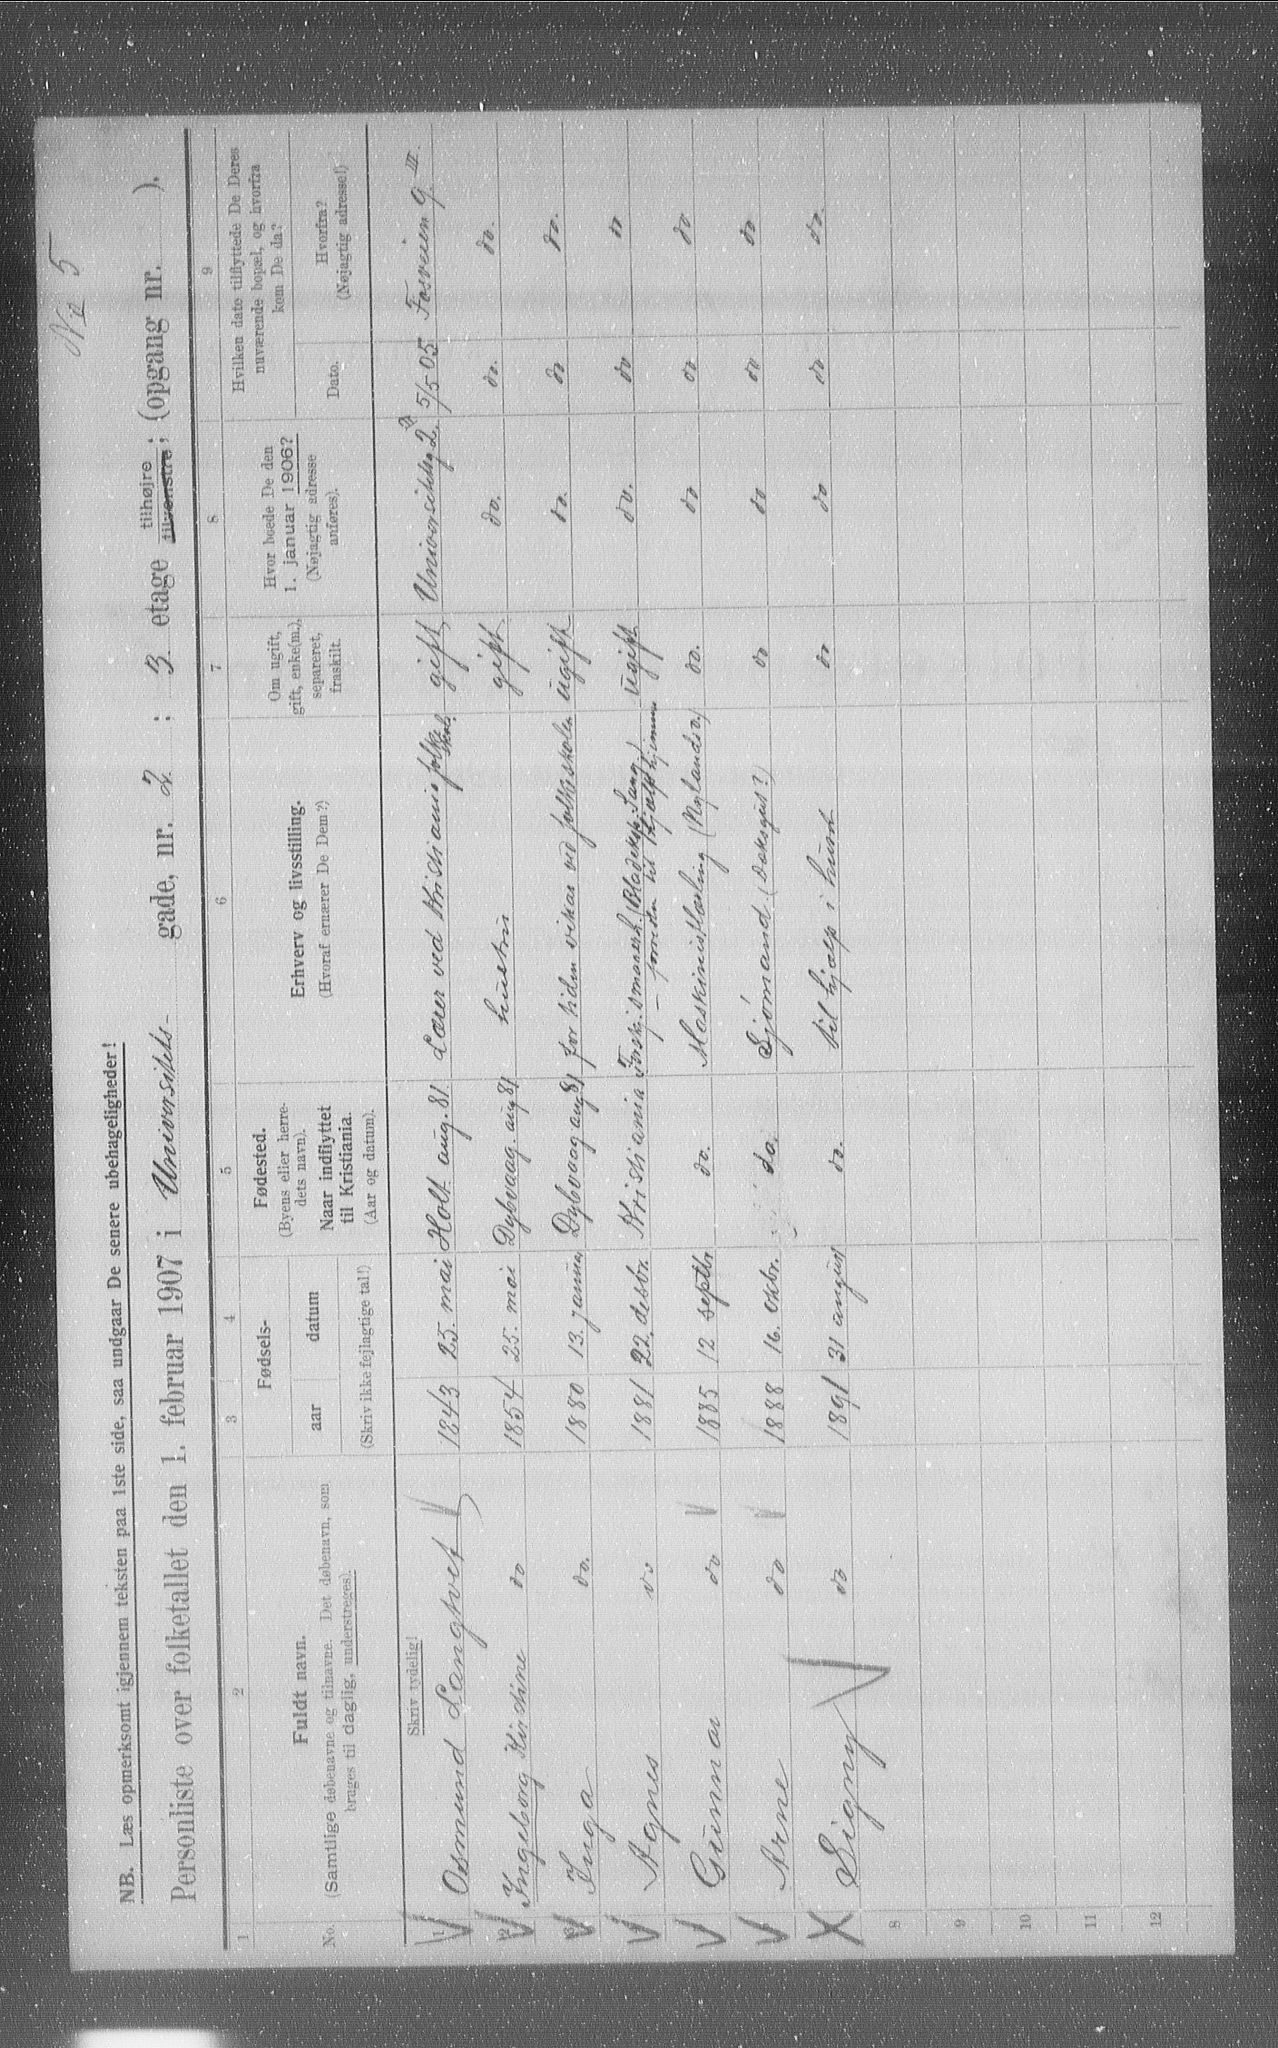 No 5
NB. Læs opmerksomt igjennem teksten paa 1ste side, saa undgaar De senere ubehageligheder!
Personliste over folketallet den 1. februar 1907 i Universitets- gade, nr. 2 ; 3 etage tilhøjre ; tilvenstre ; (opgang nr. ).
1 2 3 4 5 6 7 8 9
No.
Fuldt navn.
(Samtlige døbenavne og tilnavne. Det døbenavn, som
bruges til daglig, understreges).
Fødsels-
aar datum
(Skriv ikke fejlagtige tal!)
Fødested.
(Byens eller herre-
dets navn).
Naar indflyttet
til Kristiania.
(Aar og datum).
Erhverv og livsstilling.
(Hvoraf ernærer De Dem?)
Om ugift,
gift, enke(m.),
separeret,
fraskilt.
Hvor boede De den
1. januar 1906?
(Nøjagtig adresse
anføres).
Hvilken dato tilflyttede De Deres
nuværende bopæl, og hvorfra
kom De da?
Dato.
Hvorfra?
(Nøjagtig adresse!)
Skriv tydelig!
1 Osmund Langtvet 1843 25. mai Holt aug. 81. Lærer ved Kristiania folkeskole. gift, Universitetsg. 2 5/5 05 Fosveien 9 III.
2 Ingeborg Kirstine do 1854 25. mai Dybvaag. aug 81 hustru gift do. do. do.
3 Inga do. 1880 13. januar Dybvaag aug 81 for tiden vikar ved folkeskolen ugift do. do do.
4 Agnes do 1881 22. desbr. Kristiania
- forresten til hjælp hjemme ugift do. do do
5 Gunnar do 1885 12 septbr do. Maskinistlærling (Nylands v.) do. do do do
6 Arne do 1888 16. oktbr. do. Sjømand do do do do
7 Signy do 1891 31 august do. til hjælp i huset do do do do.
8
9
10
11
12